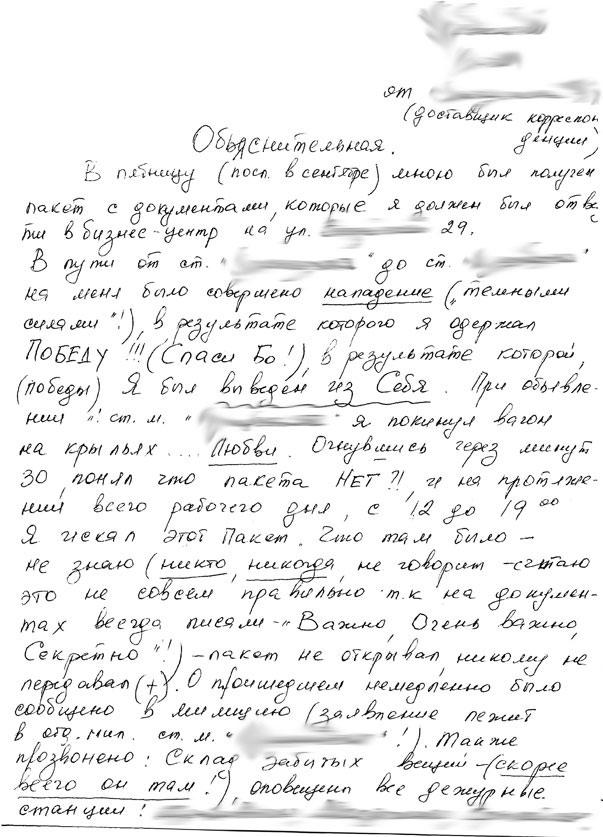 от
(доставщик корреспон
денции)
Объяснительная.
В пятницу (посл. в сентябре) мною был получен
пакет с документами, которые я должен был отвез
ти в бизнес-центр на ул. 29.
В пути от ст. " " до ст. " "
на меня было совершено нападение („темными
силами"!), в результате которого я одержал
ПОБЕДУ!!! (Спаси Бо!), в результате которой,
(победы) Я был выведен из Себя. При объявле-
нии "! ст. м. " " я покинул вагон
на крыльях .... Любви. Очнувшись через минут
30, понял что пакета НЕТ?!, и на протяже-
нии всего рабочего дня, с 12 до 19 00
Я искал этот Пакет. Что там было –
не знаю (никто, никогда, не говорит – считаю
это не совсем правильно т.к на докумен-
тах всегда писали – „Важно, Очень важно,
Секретно"!) – пакет не открывал, никому не
передавал (+). О проишедшем немедленно было
сообщено в милицию (заявление лежит
в отд. мил. ст. м. " "!). Также
прозвонено: Склад забытых вещий – (скорее
всего он там!), оповещены все дежурные
станции!